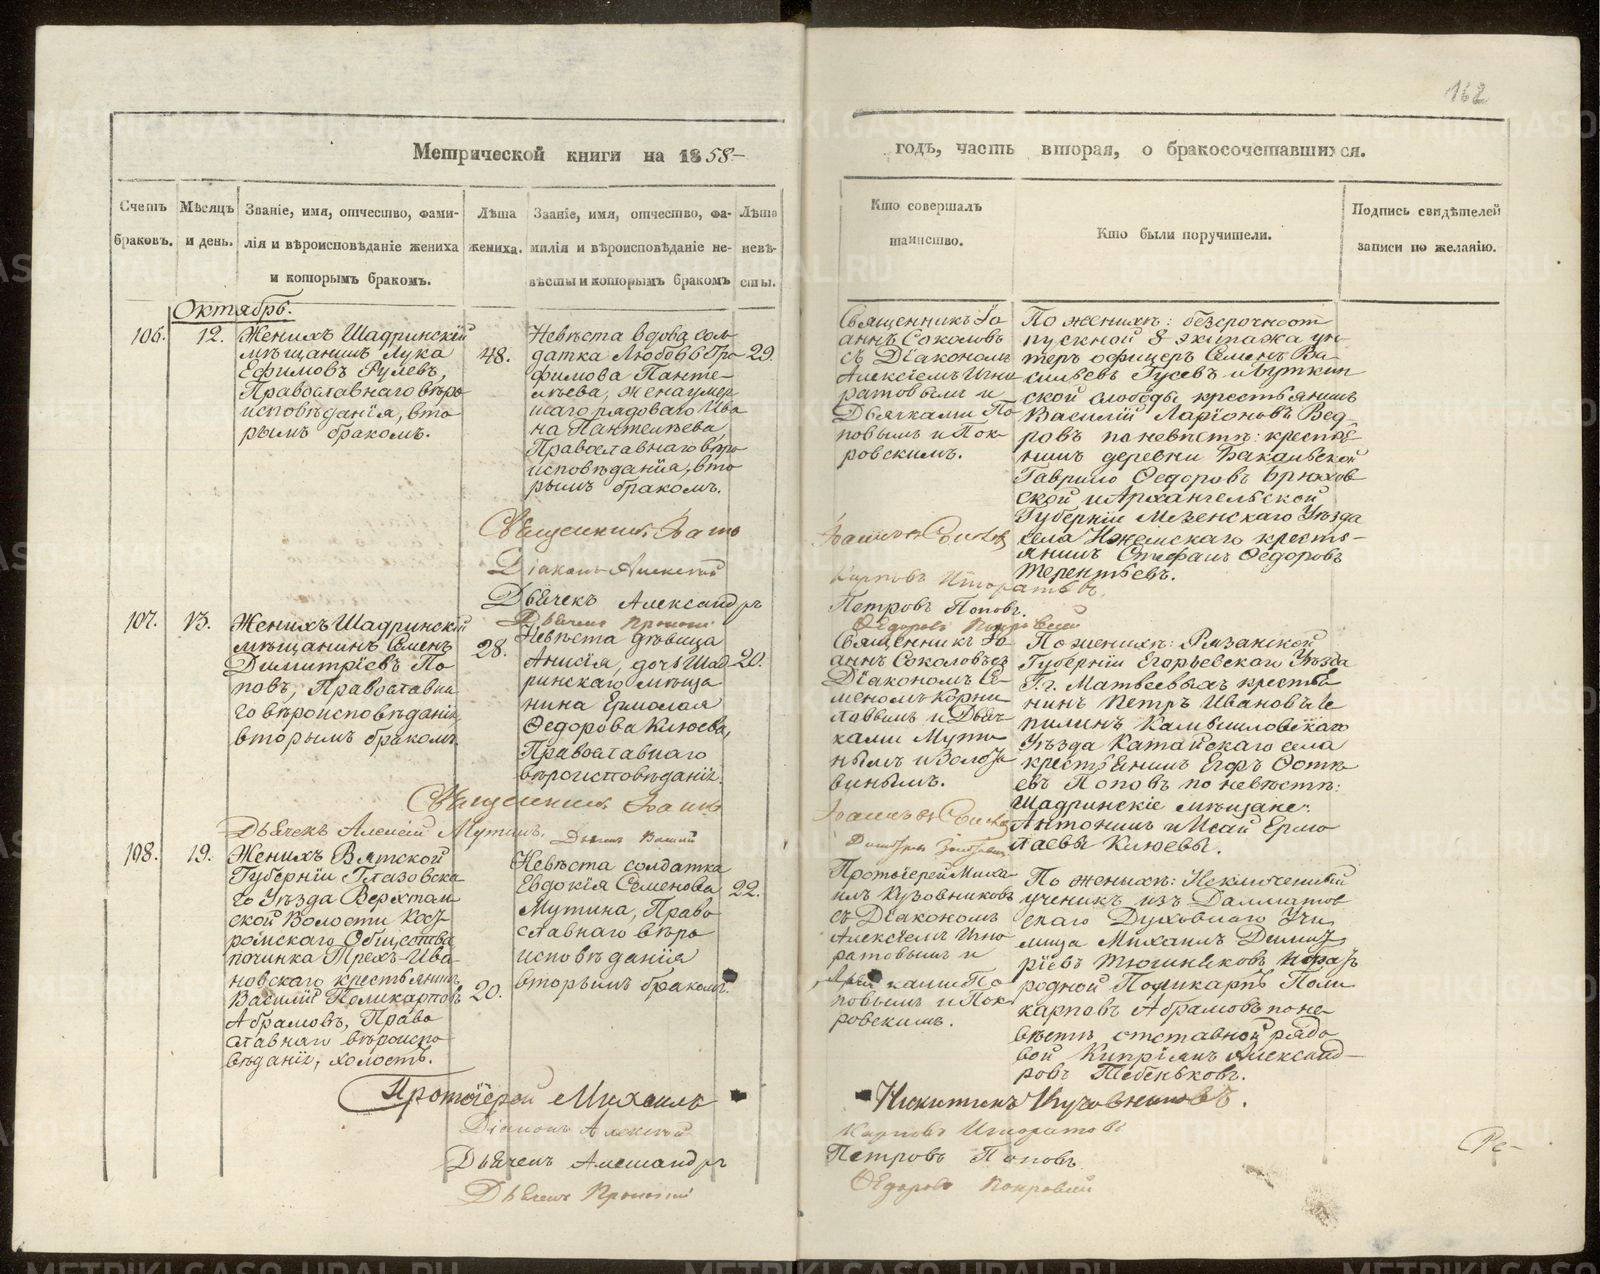 162
Метрической книги на 1858-
годъ, часть вторая, о бракосочетавшихся.
Счетъ
браковъ.
Мѣсяцъ
и день.
Званіе, имя, отчество, фами-
лія и вѣроисповѣданіе жениха
и которымъ бракомъ.
Лѣта
жениха.
Званіе, имя, отчество, фа-
милія и вѣроисповѣданіе не-
вѣсты и которымъ бракомъ
Лѣта
невѣ-
сты.
Кто совершалъ
таинство.
Кто были поручители.
Подпись свидѣтелей
записи по желанію.
Октябрь.
106.
12.
Женихъ Шадринскій
мѣщанинъ Лука
Ефимовъ Рулевъ,
Православнаго вѣро
исповѣданія, вто
рымъ бракомъ.
48.
Невѣста вдова сол-
датка Любовь Тро
фимова Панте-
лѣева, жена умер
шаго рядоваго Ива
на Пантелѣева,
Православнаго вѣро
исповѣданія, вто
рымъ бракомъ.
29.
Священникъ Іо
аннъ Соколовъ
съ Діакономъ
Алексіемъ Игно
ратовымъ и
Дьячками По
повымъ и Пок-
ровскимъ.
По женихѣ: безсрочноот
пускной 8 экипажа ун-
теръ офицеръ Семенъ Ва-
сильевъ Гусевъ и Буткин
ской слободы крестьянинъ
Василій Ларіоновъ Вед-
ровъ по невѣстѣ: крестья
нинъ деревни Бакальской
Гаврило Ѳедоровъ Брюхов
ской и Архангельской
Губерніи Мезенскаго Уѣзда
села Ижемскаго кресть-
янинъ Стефанъ Ѳедоровъ
Терентьевъ.
Священникъ Іоаннъ
Діаконъ Алексій
Дьячекъ Александръ
Дьячекъ Прокопій
Петровъ Поповъ.
Ѳедоровъ Покровскій
107.
13.
Женихъ Шадринскій
мѣщанинъ Семенъ
Димитріевъ По
повъ, Православна
го вѣроисповѣданія,
вторымъ бракомъ.
28.
Невѣста дѣвица
Анисія, дочь Шад
ринскаго мѣща
нина Ермолая
Ѳедорова Клюева,
Православнаго
вѣроисповѣданія.
20.
Священникъ Іо
аннъ Соколовъ съ
Діакономъ Се
меномъ Корни
ловымъ и Дьяч-
ками Мути
нымъ и Золота
винымъ.
По женихѣ: Рязанской
Губерніи Егорьевскаго Уѣзда
Г. г. Матвеевыхъ крестья
нинъ Петръ Ивановъ Ле
пилинъ Камышловскаго
Уѣзда Катайскаго села
крестьянинъ Егоръ Фоти
евъ Поповъ по невѣстѣ:
Шадринскіе мѣщане:
Антонинъ и Исай Ермо
лаевы Клюевы.
Священникъ Іоаннъ
Дьячекъ Алексій Мутинъ.
108.
19.
Женихъ Вятской
Губерніи Глазовска
го Уѣзда Верхтан
ской Волости Коз-
роинскаго Общества
починка Трехъ-Ива
новскаго крестьянинъ
Василій Поликарповъ
Абрамовъ, Право
славнаго вѣроиспо
вѣданія, холостъ.
20.
Невѣста солдатка
Евдокія Семенова
Мутина, Право
славнаго вѣро
исповѣданія
вторымъ бракомъ.
22.
Протоіерей Миха-
илъ Кузовниковъ
съ Діакономъ
Алексіемъ Игно
ратовымъ и
Дьячками По
повымъ и Пок
ровскимъ.
По женихѣ: Исключенный
ученикъ изъ Далматов
скаго Духовнаго Учи
лища Михаилъ Димит
ріевъ Тюшняковъ и брат
родной Поликарпъ Поли
карповъ Абрамовъ по не-
вѣстѣ отставной рядо
вой Кипріянъ Александ-
ровъ Тебеньковъ.
Протоіерей Михаилъ Никитинъ Кузовниковъ.
Діаконъ Алексій Карповъ Игноратовъ
Дьячекъ Александръ Петровъ Поповъ
Дьячекъ Прокопій Ѳедоровъ Покровскій
Ре-